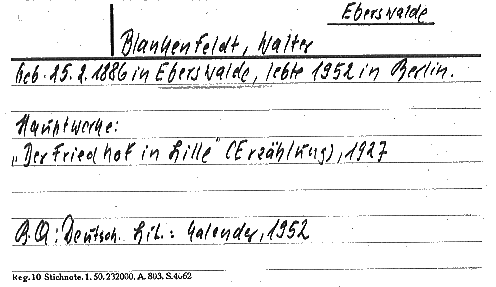 Eberswalde
Blankenfeldt, Walter
Geb. 25.2.1886 in Eberswalde, lebte 1952 in Berlin.
Hauptwerke:
„Der Friedhof in Lille" (Erzählung), 1927
B.Q.: Deutsch. Lit.: Kalender, 1952
Reg. 10 Stichnote. 1. 50. 232000. A. 803. S. 4662